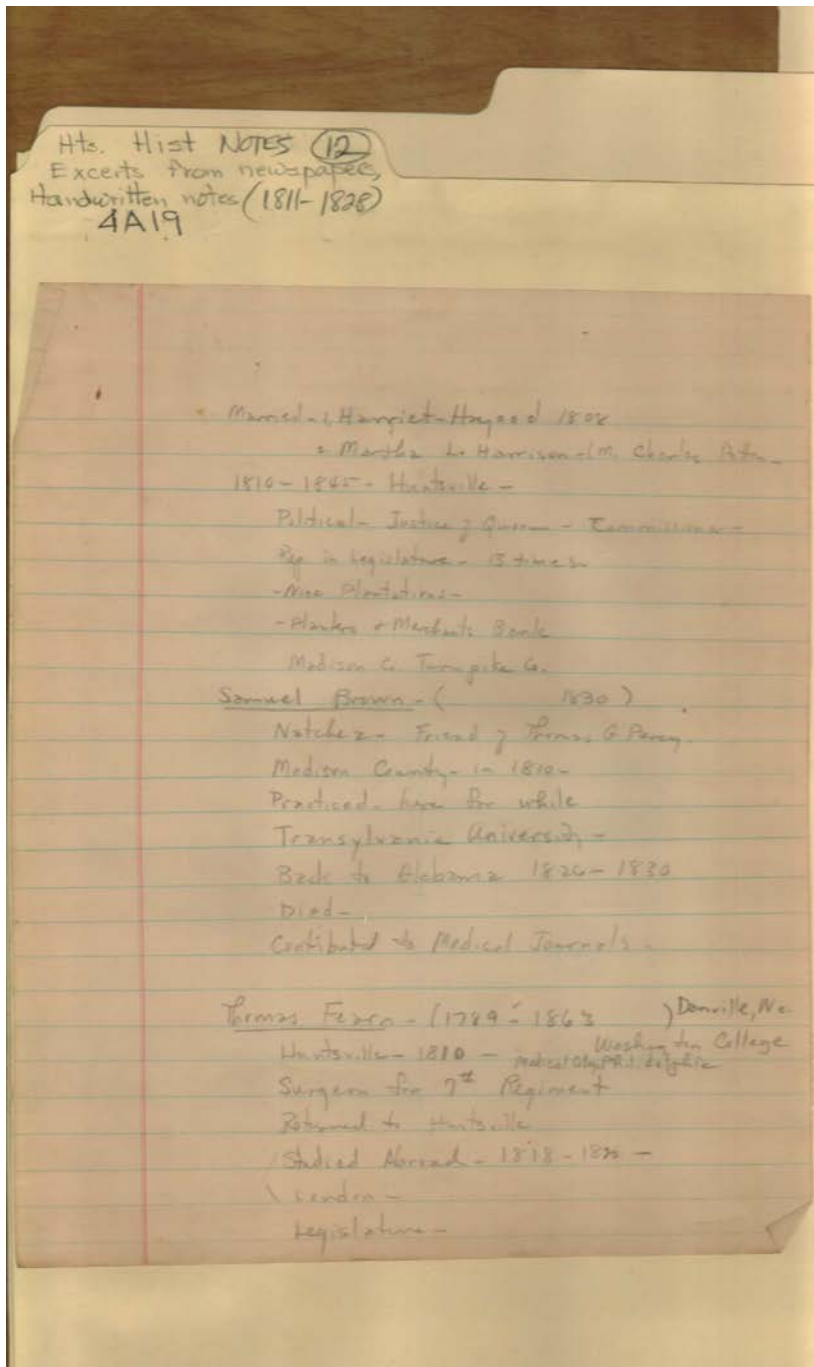 Hts. Hist NOTES (12)
Excerts from newspapers,
Handwritten notes (1811-1828)
4A19
Married - 1, Harriet - Haygood 1808
2 Martha L. Harrison - (M. Charles
1810 - 1845 - Huntsville -
Political - Justice of - Commissioner -
Rep in Legislature - 13 times
- Plantations -
- Planters & Merchants Bank
Madison Co. Turnpike Co.
Samuel Brown - ( 1830 )
Natchez - Friend of Thomas G Percy.
Madison County - in 1810 -
Practiced - here for while
Transylvania University -
Back to Alabama 1826 - 1830
Died -
Contibuted to Medical Journals -
Thomas Fearn - (1789 - 1863 ) Danville,
Huntsville - 1810 - Washington College
Medical Philidelphia
Surgeon for 7th Regiment
Returned to Huntsville
Studied Abroad - 1818 - 1820 -
London -
Legislature -